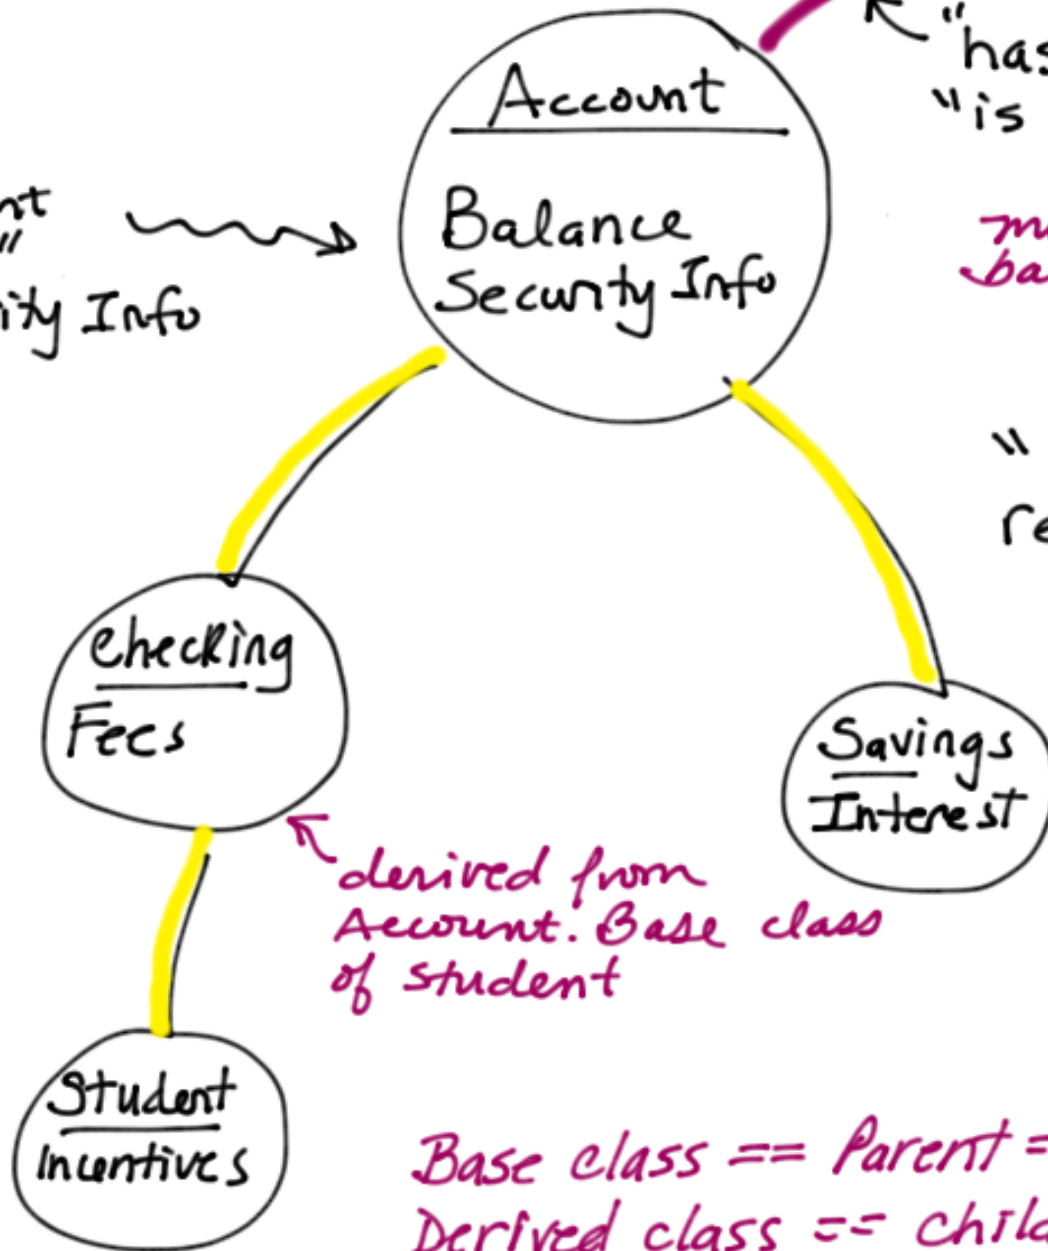 "has
"is
Account
Balance
Security Info
Info
"
Checking
Fees
Savings
Interest
derived from
Account. Base class
of student
Student
Incentives
Base class == Parent =
Derived class == Child